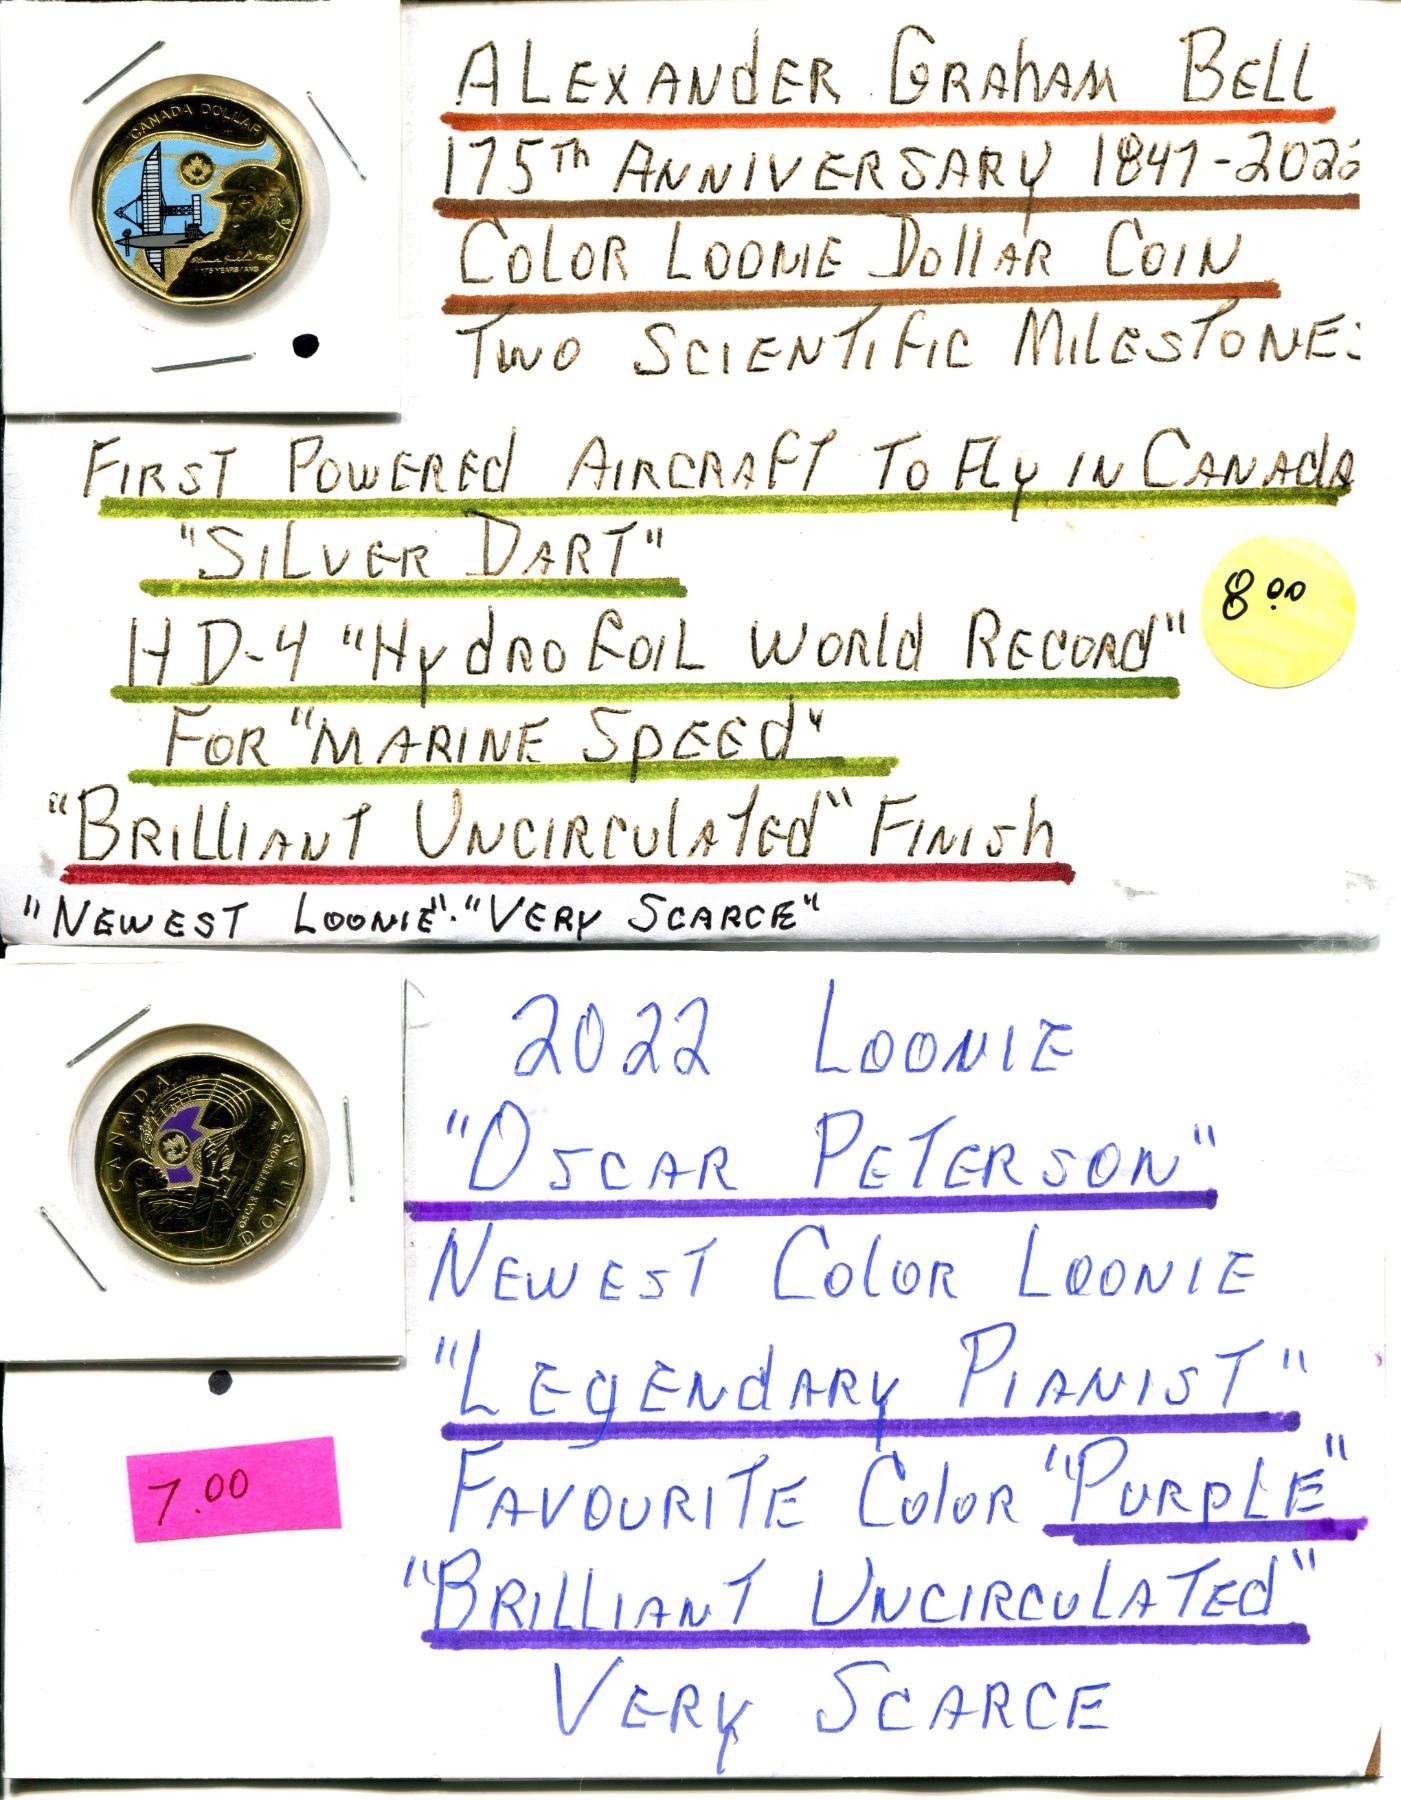 CANADA DOLLAR
175 YEARS/ANS
ALEXANDER GRAHAM BELL
175TH ANNIVERSARY 1847-2022
COLOR LOONIE DOLLAR COIN
TWO SCIENTIFIC MILESTONE:
FIRST POWERED AIRCRAFT TO FLY IN CANADA
"SILVER DART"
8.00
HD-4 "HYDROFOIL WORLD RECORD"
FOR "MARINE SPEED"
"BRILLIANT UNCIRCULATED" FINISH
"NEWEST LOONIE". "VERY SCARCE"
CANADA
OSCAR PETERSON
DOLLAR
2022 LOONIE
"OSCAR PETERSON"
NEWEST COLOR LOONIE
"LEGENDARY PIANIST"
FAVOURITE COLOR "PURPLE"
7.00
"BRILLIANT UNCIRCULATED"
VERY SCARCE